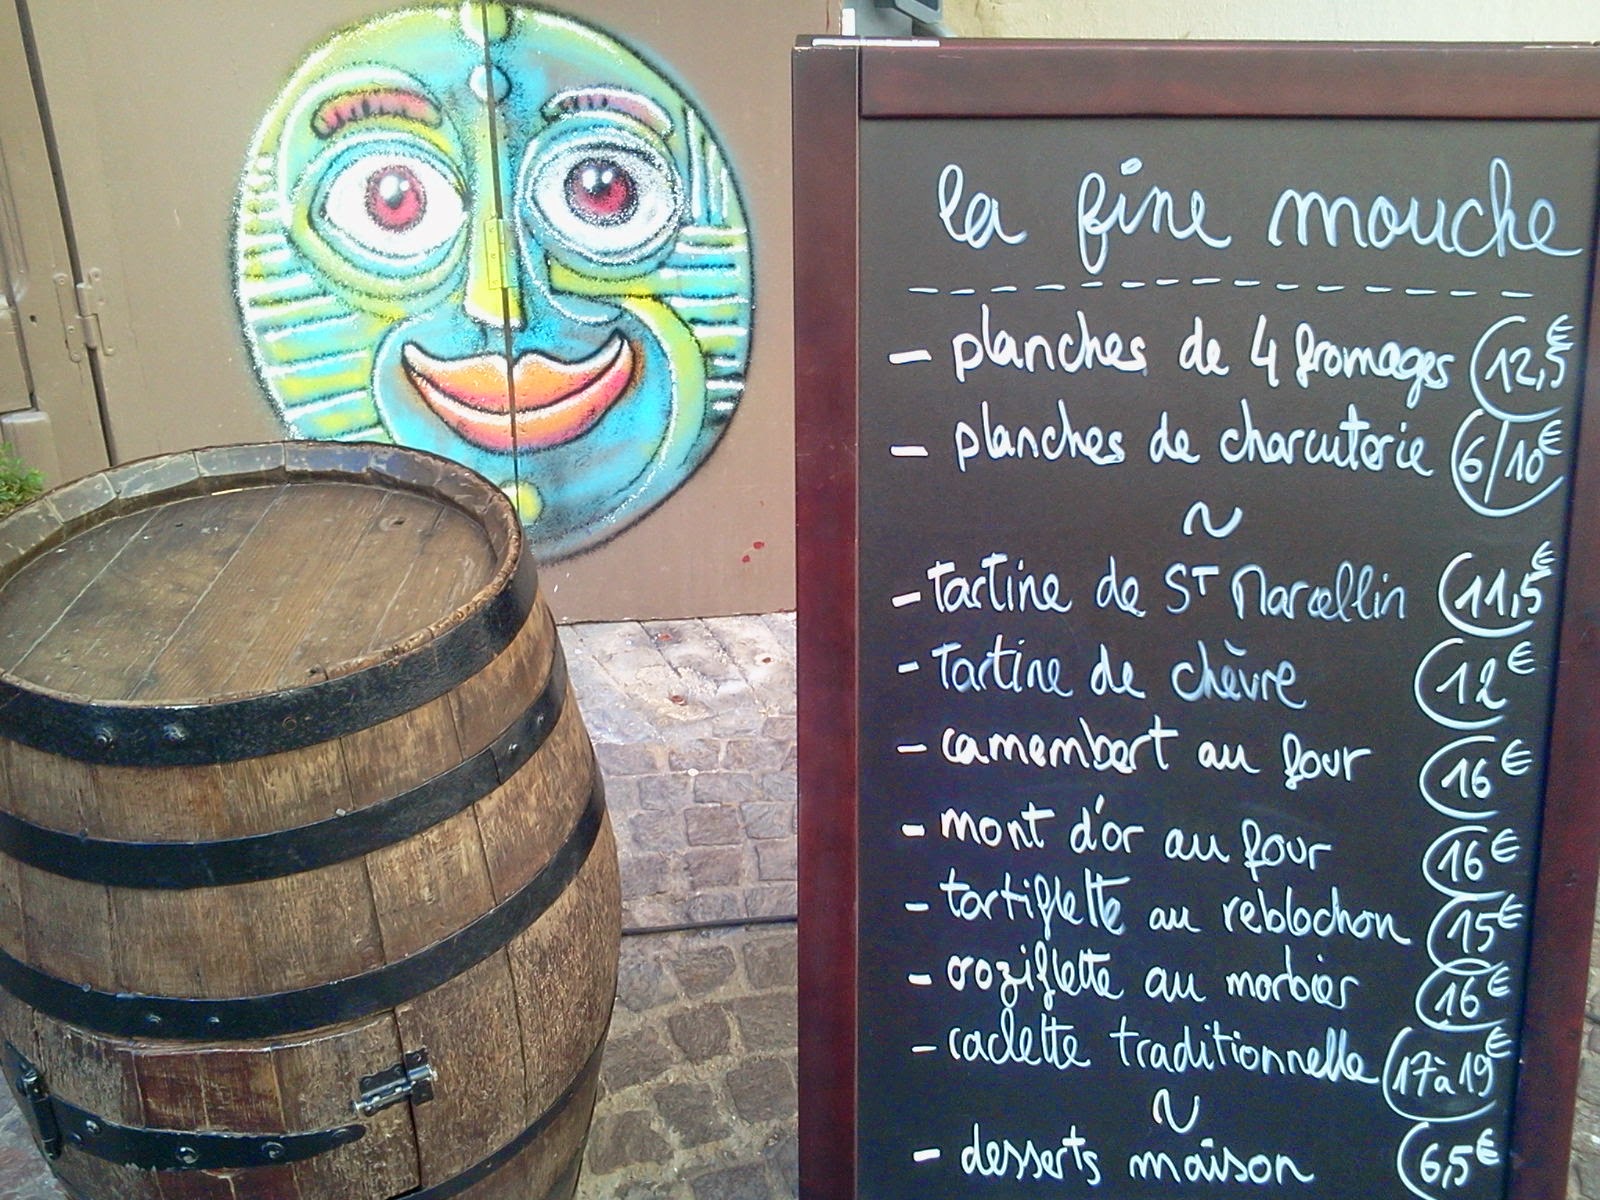 la fine mouche
- planches de 4 fromages 12,5€
- planches de charcuterie 6/10€
~
- tartine de ST Marcellin 11,5€
- tartine de chèvre 12€
- camembert au four 16€
- mont d'or au four 16€
- tartiflette au reblochon 15€
- croziflette au morbier 16€
- raclette traditionnelle 17 à 19€
~
- desserts maison 6,5€